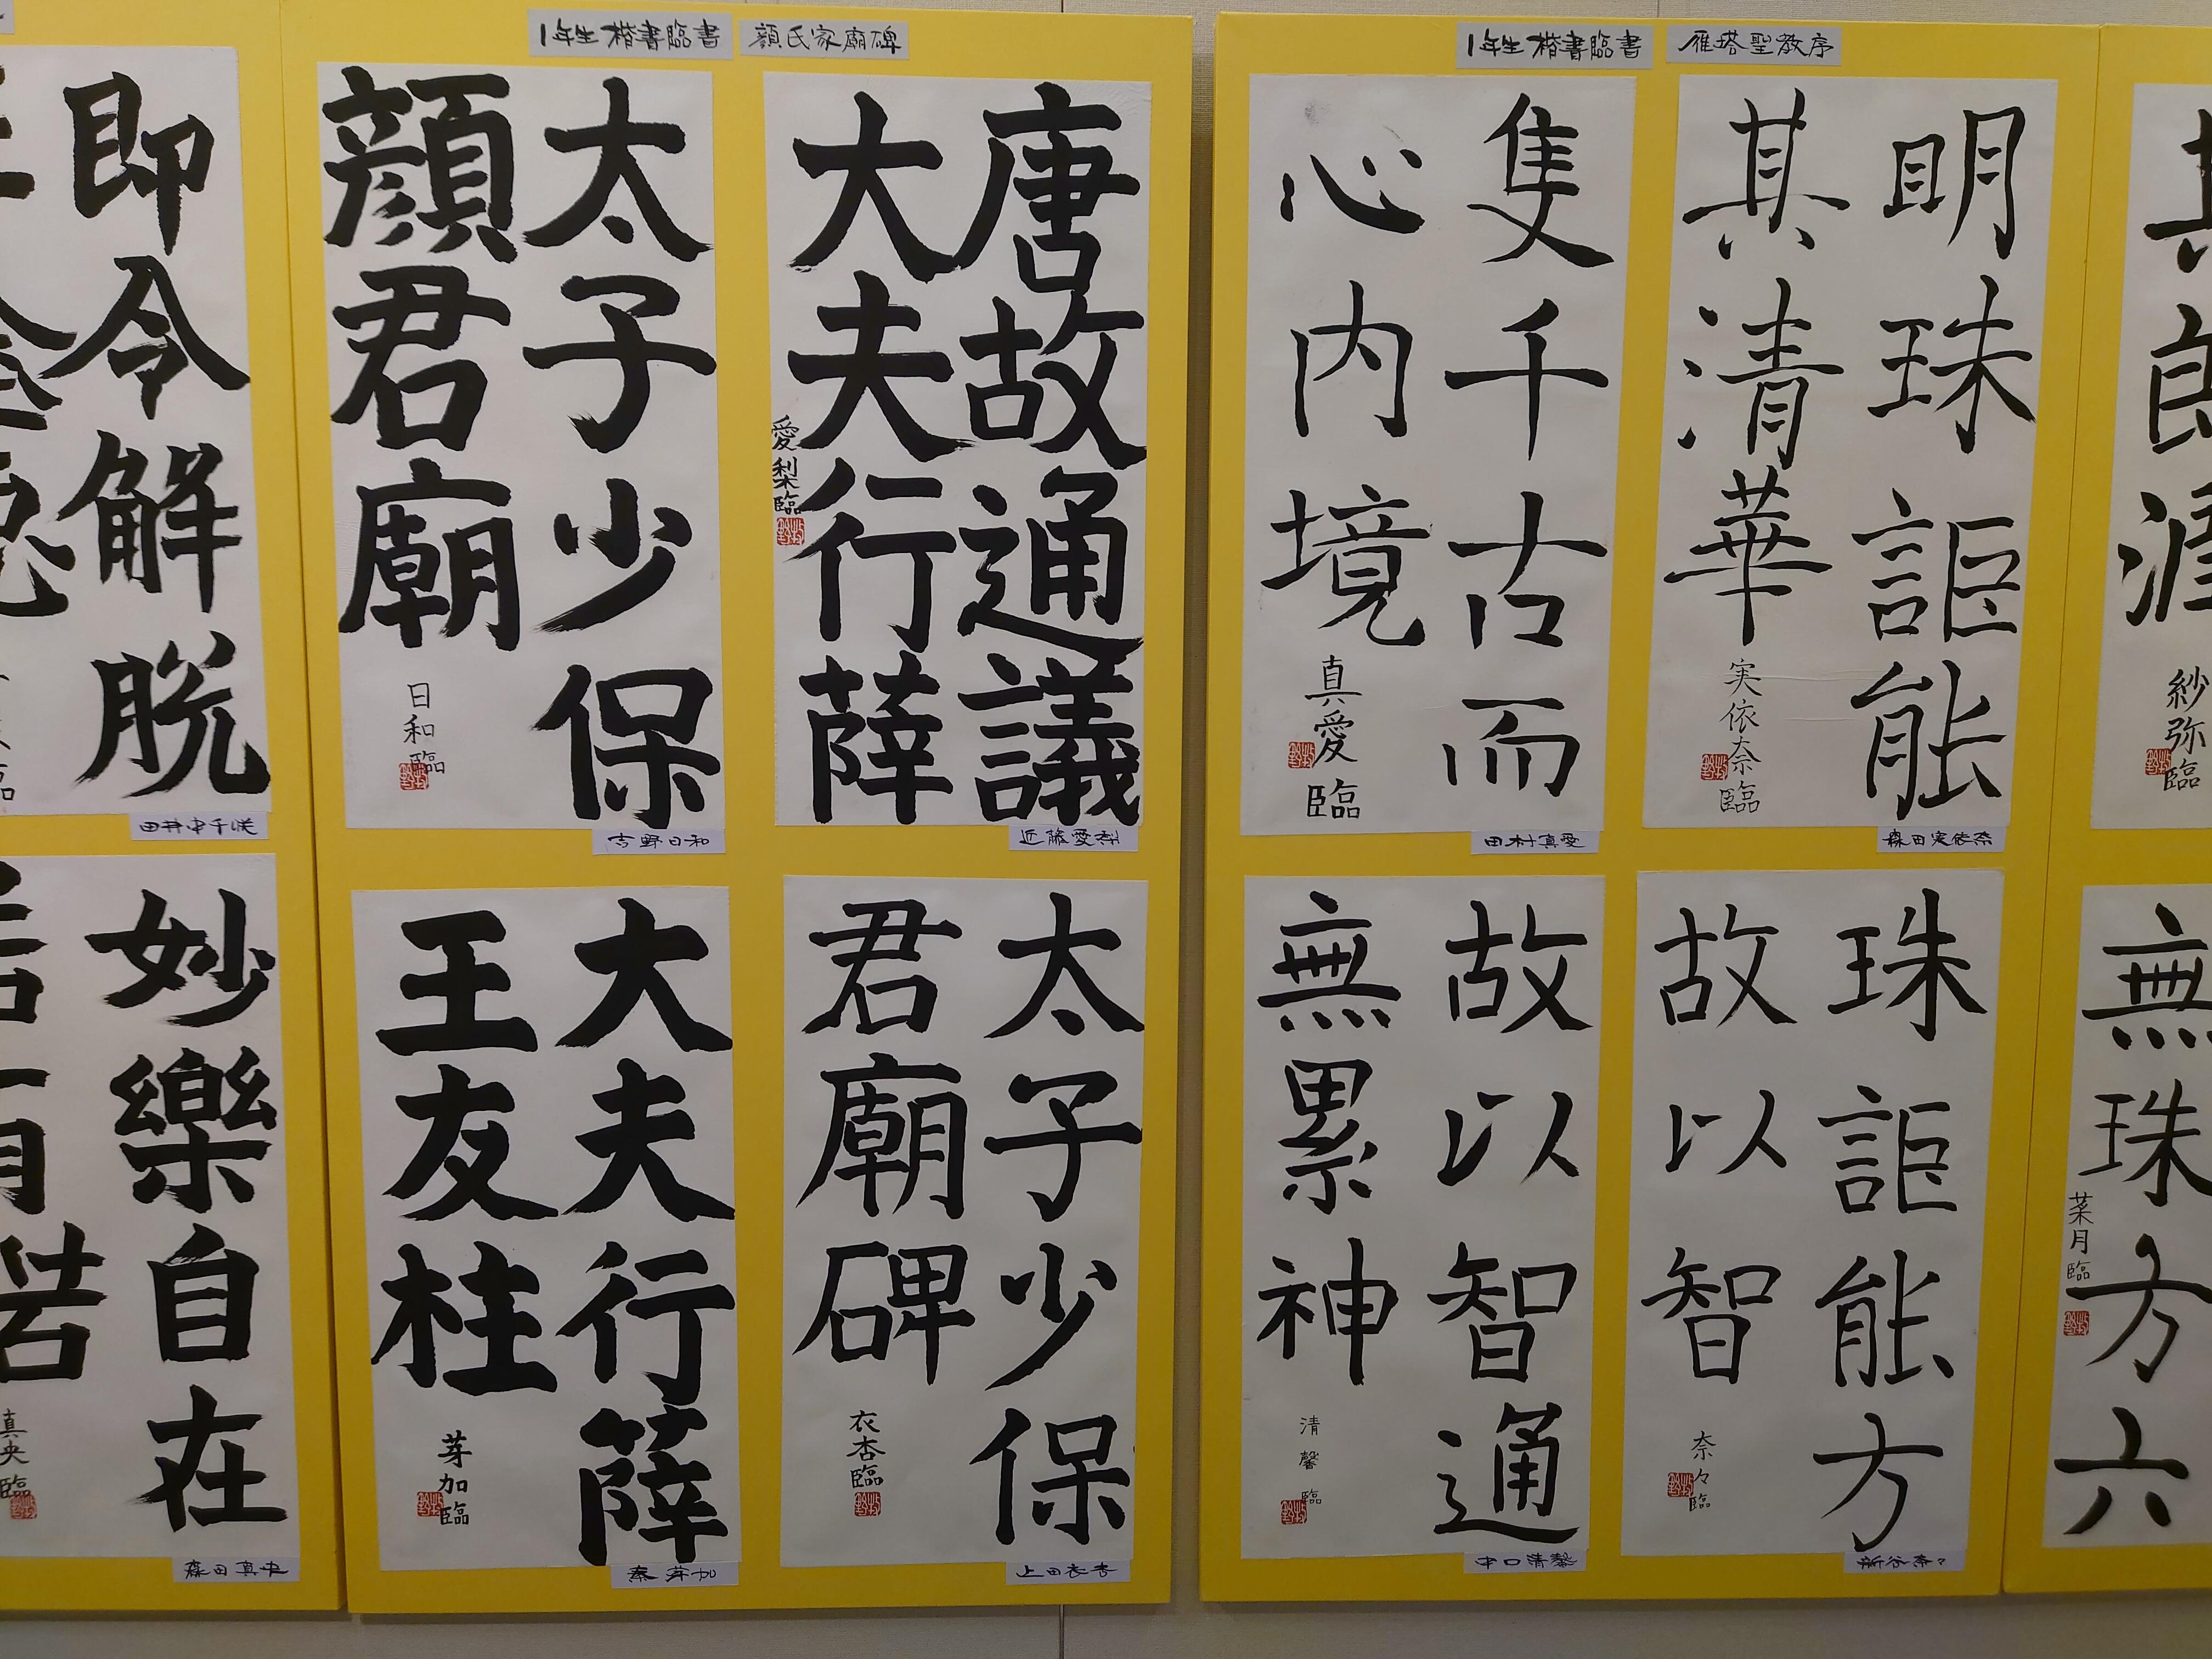 1年生 楷書臨書
顔氏家廟碑
1年生 楷書臨書
雁塔聖教序
明珠詎能
其清華
実依奈臨
森田実依奈
隻千古而
心内境
真愛臨
田村真愛
珠詎能方
故以智
奈々臨
新谷奈々
故以智通
無累神
清馨臨
中口清馨
唐故通議
大夫行薛
愛梨臨
近藤愛梨
太子少保
顔君廟
日和臨
吉野日和
太子少保
君廟碑
衣杏臨
上田衣杏
大夫行薛
王友柱
芽加臨
秦芽加
即令解脱
田井中千咲
妙樂自在
真央臨
森田真央
紗弥臨
無珠方六
菜月臨